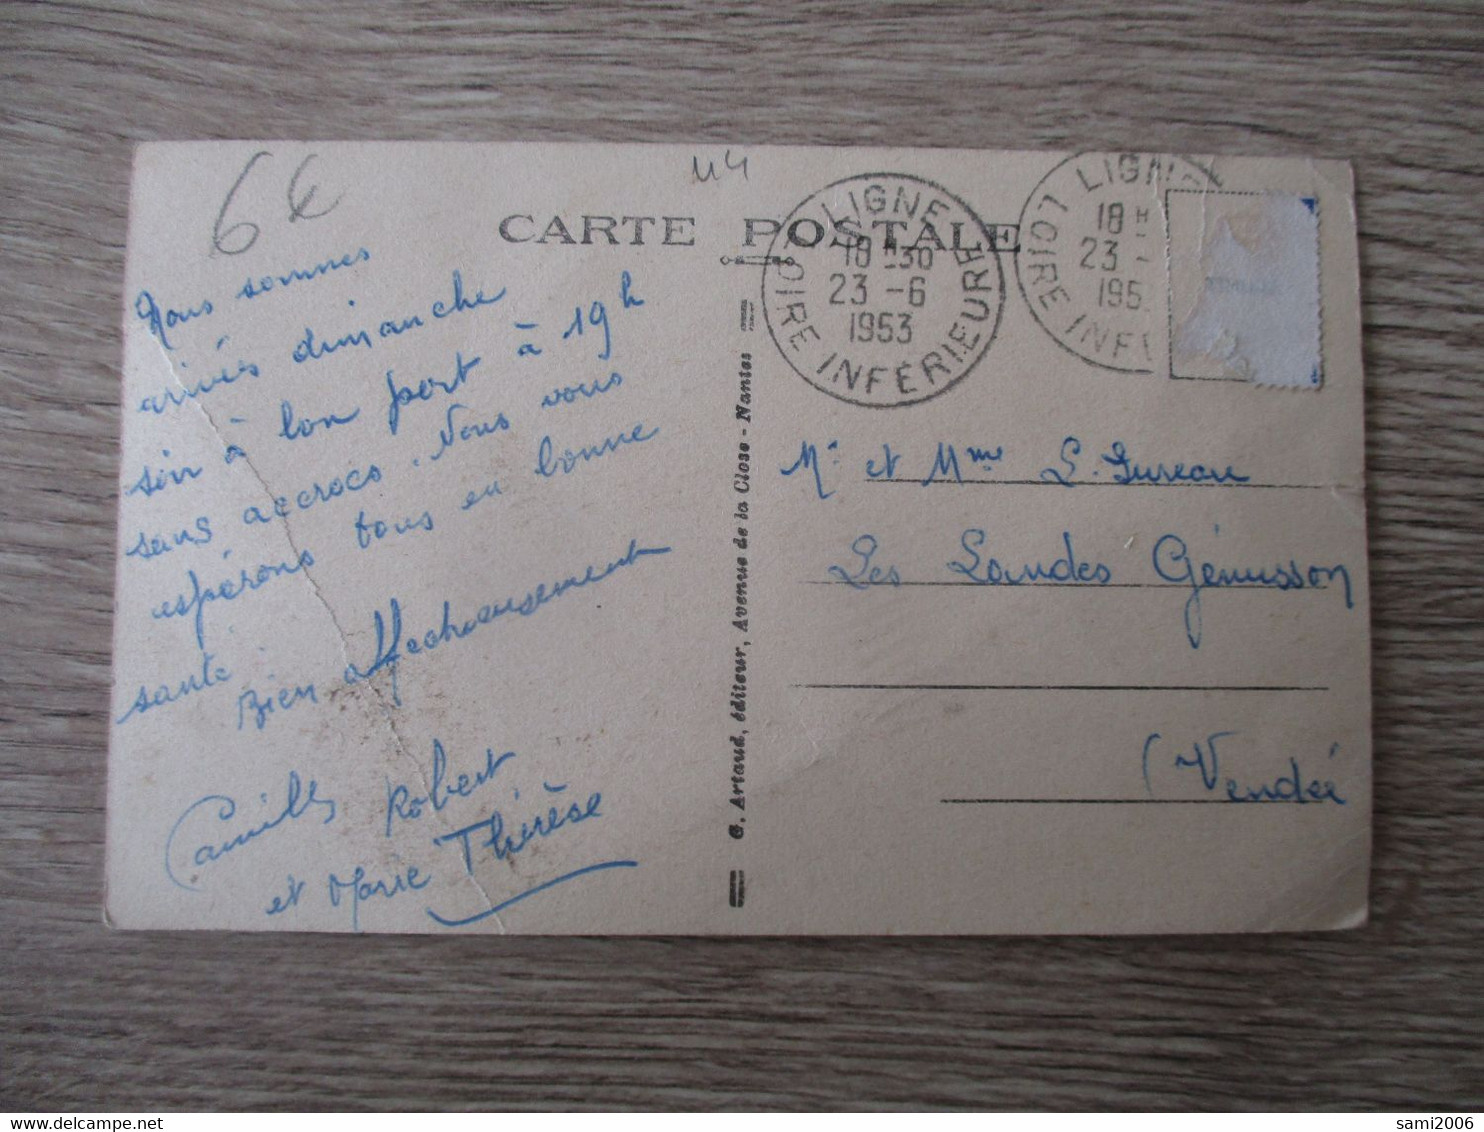 6€
44
CARTE POSTALE
LIGNÉ
18 H30
23 -6
1953
LOIRE INFÉRIEURE
LIGN
18 H
23 -
195
LOIRE INF
Nous sommes
arrivés dimanche
soir à bon port à 19h
sans accrocs. Nous vous
espérons tous en bonne
santé.
Bien affectueusement
Camille Robert
et Marie Thérèse
G. Artaud, éditeur, Avenue de la Close - Nantes
Mr et Mme L. Jureau
Les Landes Génusson
(Vendée
sami2006